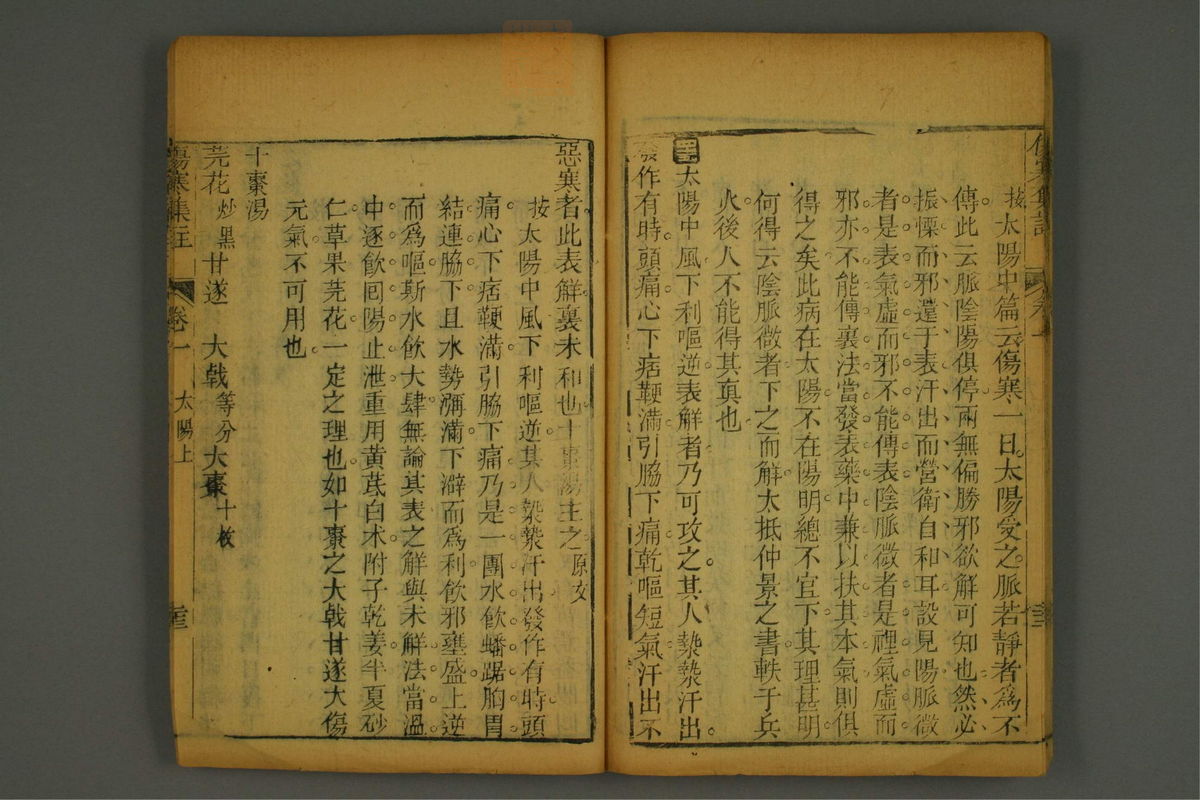 傷寒集註 卷一 三
按太陽中篇云傷寒一日太陽受之脈若靜者爲不
傳此云脈陰陽俱停兩無偏勝邪欲解可知也然必
振慄而邪還于表汗出而營衛自和耳設見陽脈微
者是表氣虛而邪不能傳表陰脈微者是裡氣虛而
邪亦不能傳裏法當發表藥中兼以扶其本氣則俱
得之矣此病在太陽不在陽明總不宜下其理甚明
何得云陰脈微者下之而解大抵仲景之書軼于兵
火後人不能得其眞也
太陽中風下利嘔逆表解者乃可攻之其人漐漐汗出
發作有時頭痛心下痞鞕滿引脇下痛乾嘔短氣汗出不
惡寒者此表解裏未和也十棗湯主之原文
按太陽中風下利嘔逆其人漐漐汗出發作有時頭
痛心下痞鞕滿引脇下痛乃是一團水飲蟠踞胸胃
結連脇下且水勢瀰滿下澼而爲利飲邪壅盛上逆
而爲嘔斯水飲大肆無論其表之解與未解法當溫
中逐飲囘陽止泄重用黄芪白朮附子乾姜半夏砂
仁草果芫花一定之理也如十棗之大戟甘遂大傷
元氣不可用也
十棗湯
芫花炒黑甘遂 大戟等分大棗十枚
傷寒集註 卷一 太陽上 三